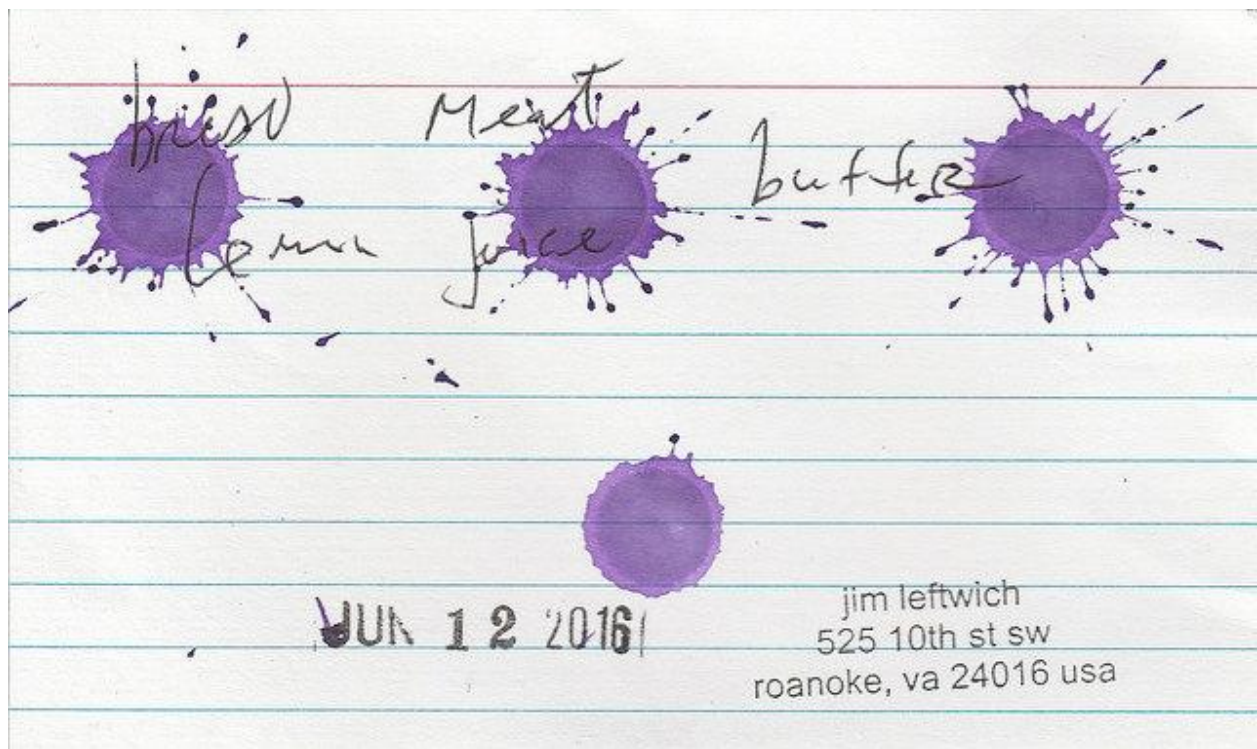 bread Meat butter
lemon juice
JUN 12 2016
jim leftwich
525 10th st sw
roanoke, va 24016 usa